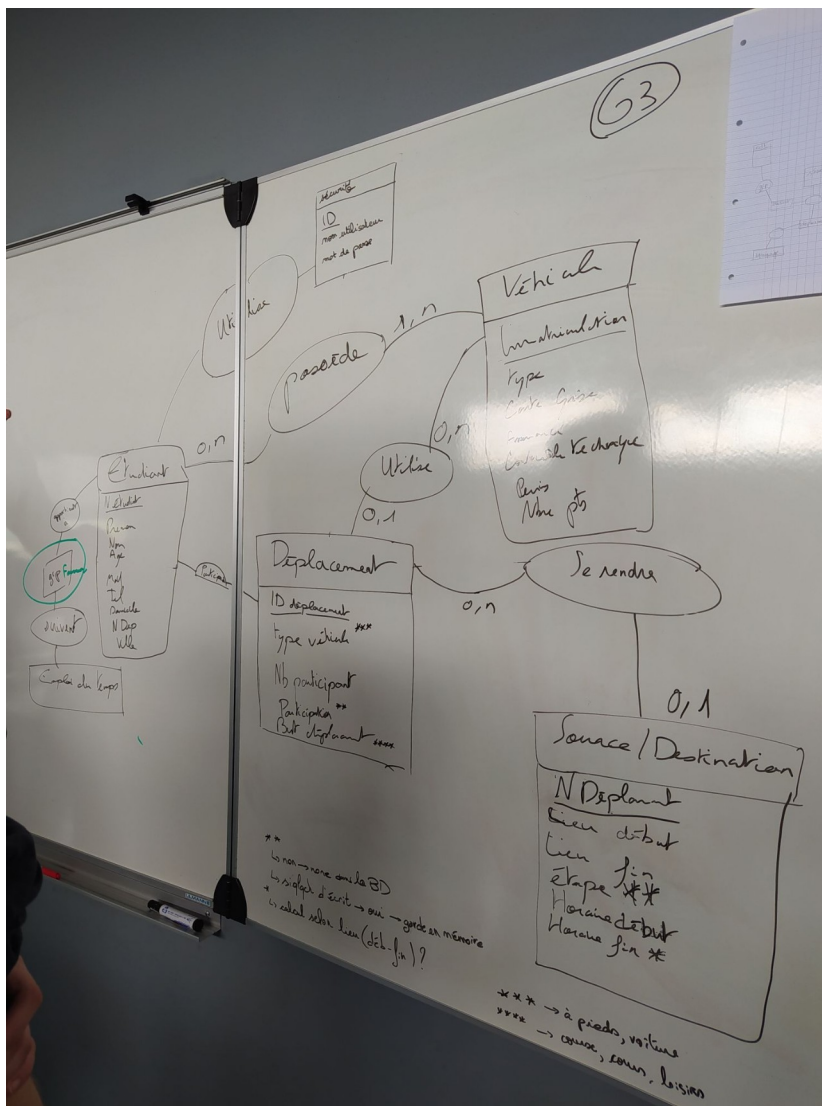 G3
sécurité
ID
nom utilisateur
mot de passe
Utilise
possède
1,n
0,n
Véhicule
Immatriculation
type
Carte Grise
Controle technique
Permis
Nbre pts
0,n
Utilise
0,1
Etudiant
N étudiant
Prenom
Nom
Age
Mail
Tel
Domicile
N Dep
Ville
suivent
Emploi du temps
Déplacement
ID déplacement
type véhicule ***
Nb participant
Participation **
But déplacement ****
0,n
Se rendre
0,1
Source/Destination
N Deplacement
Lieu début
Lieu fin
étape **
Horaire début
Horaire fin *
**
↳ non → none dans la BD
d'écrit → oui → garde en mémoire
*
↳ calcul selon lieu (déb-fin) ?
*** → à pieds, voiture
**** → course, cours, loisirs